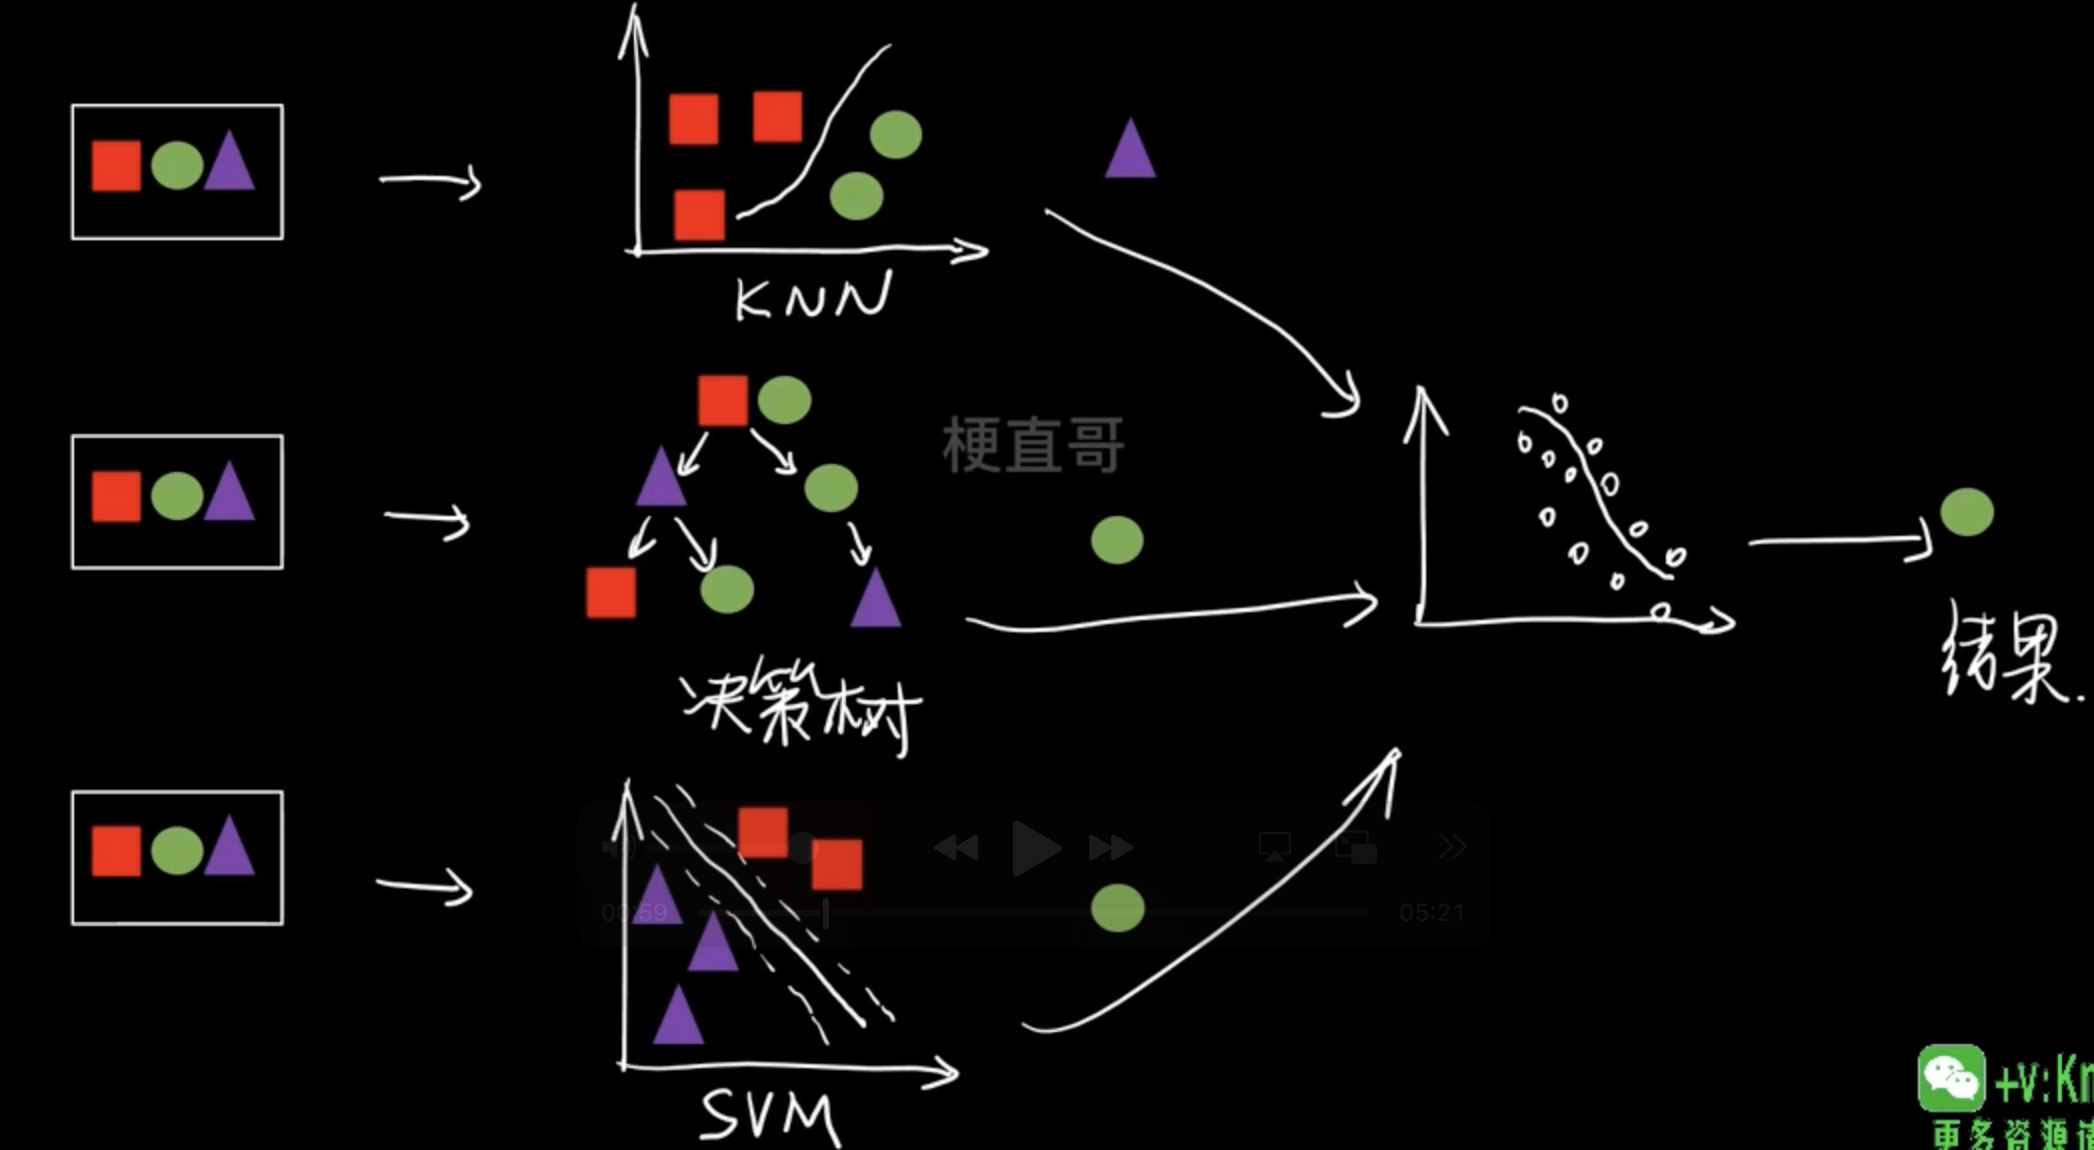 KNN
梗直哥
决策树
结果.
00:59
05:21
SVM
+v:Kn
更多资源请